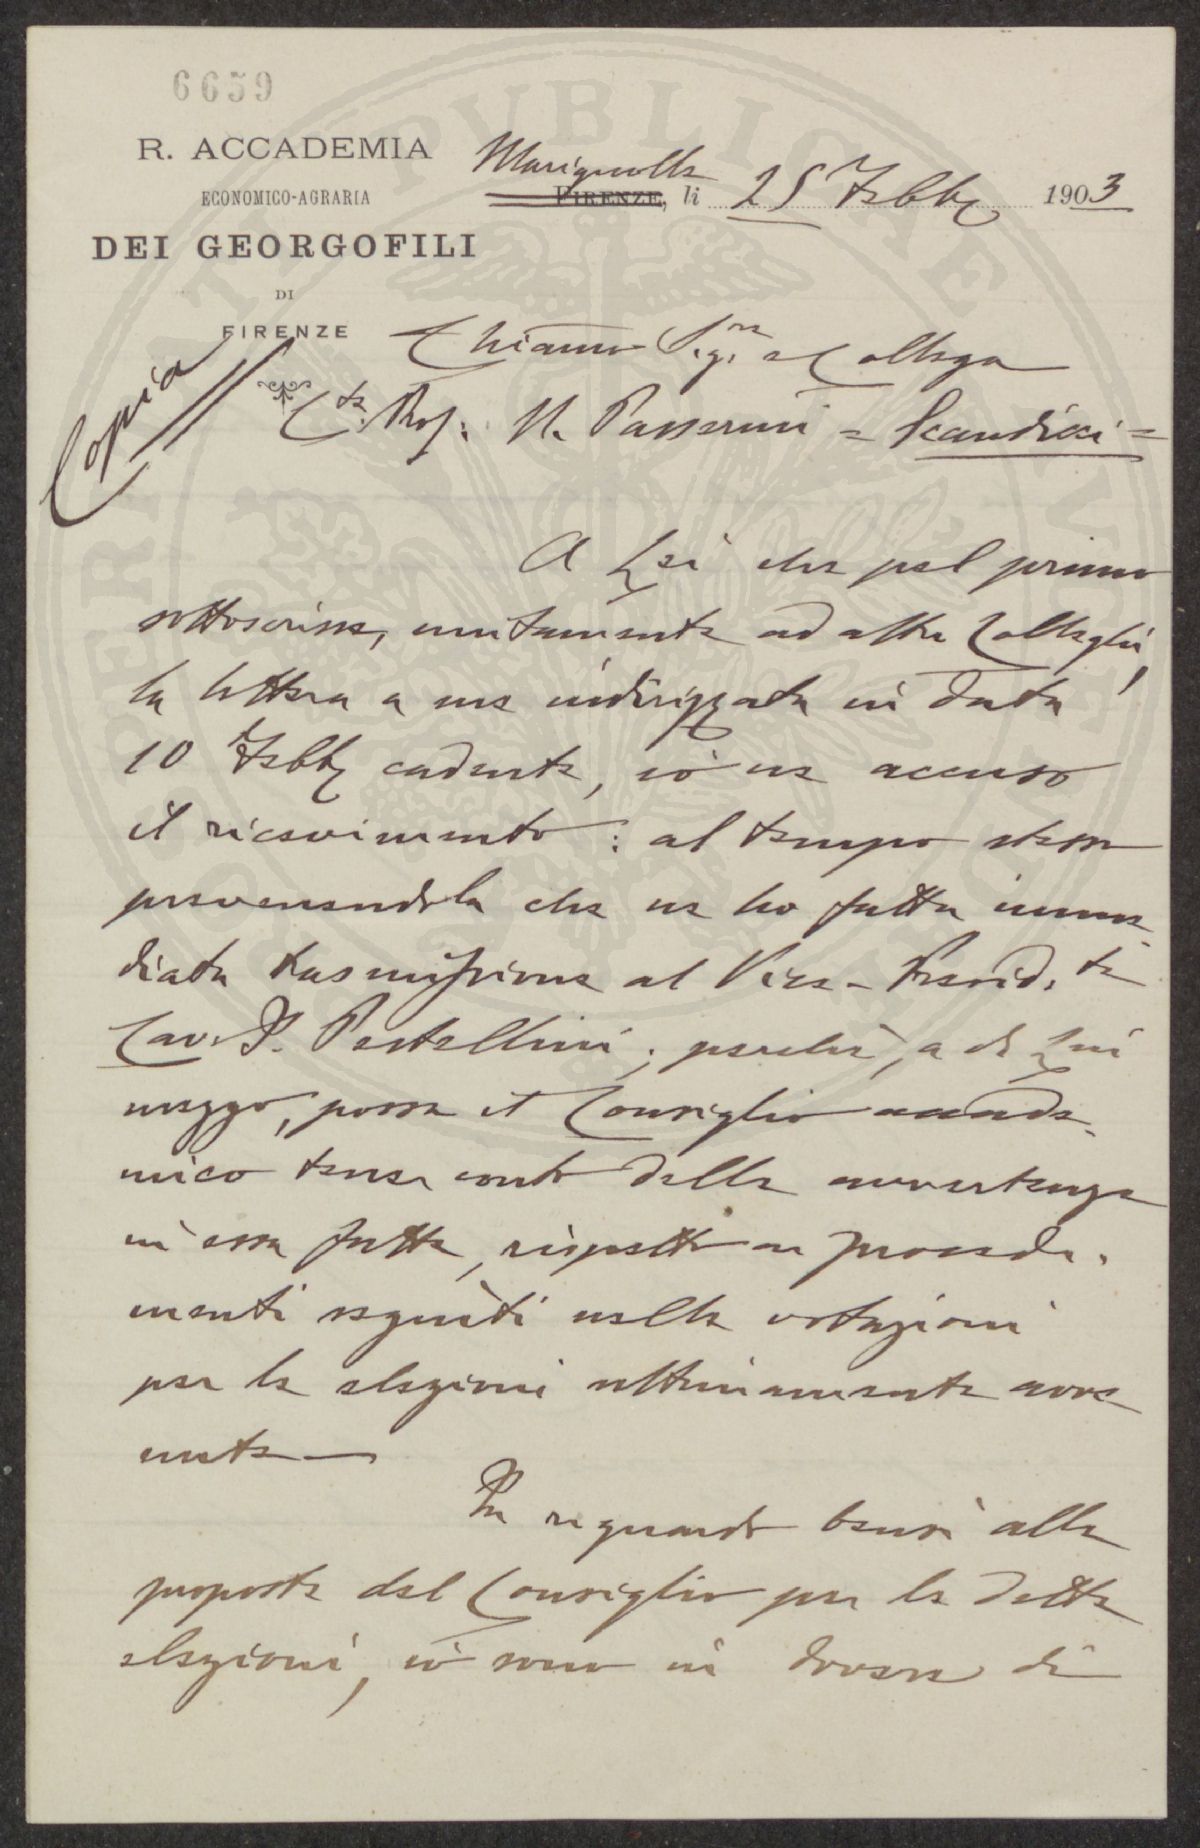 6659
R. ACCADEMIA
ECONOMICO-AGRARIA
DEI GEORGOFILI
DI
FIRENZE
Marignolle
FIRENZE, li 25 Febb. 1903
Copia
Chiarmo Sigre e Collega
Cte Prof. N. Passerini = Scandicci =
A Lei che pel primo
sottoscrisse, unitamente ad altri Colleghi,
la lettera a me indirizzata in data
10 Febb. cadente, io ne accuso
il ricevimento: al tempo stesso
prevenendola che ne ho fatta imme-
diata trasmissione al Vice-Presid.te
Cav. I. Pestellini; perchè, a di Lui
mezzo, possa il Consiglio accade-
mico tener conto delle avvertenze
in essa fatte, rispetto ai procedi-
menti seguiti nelle votazioni
per le elezioni ultimamente avve
nute —
In riguardo bensì alle
proposte del Consiglio per le dette
elezioni, io sono in dovere di